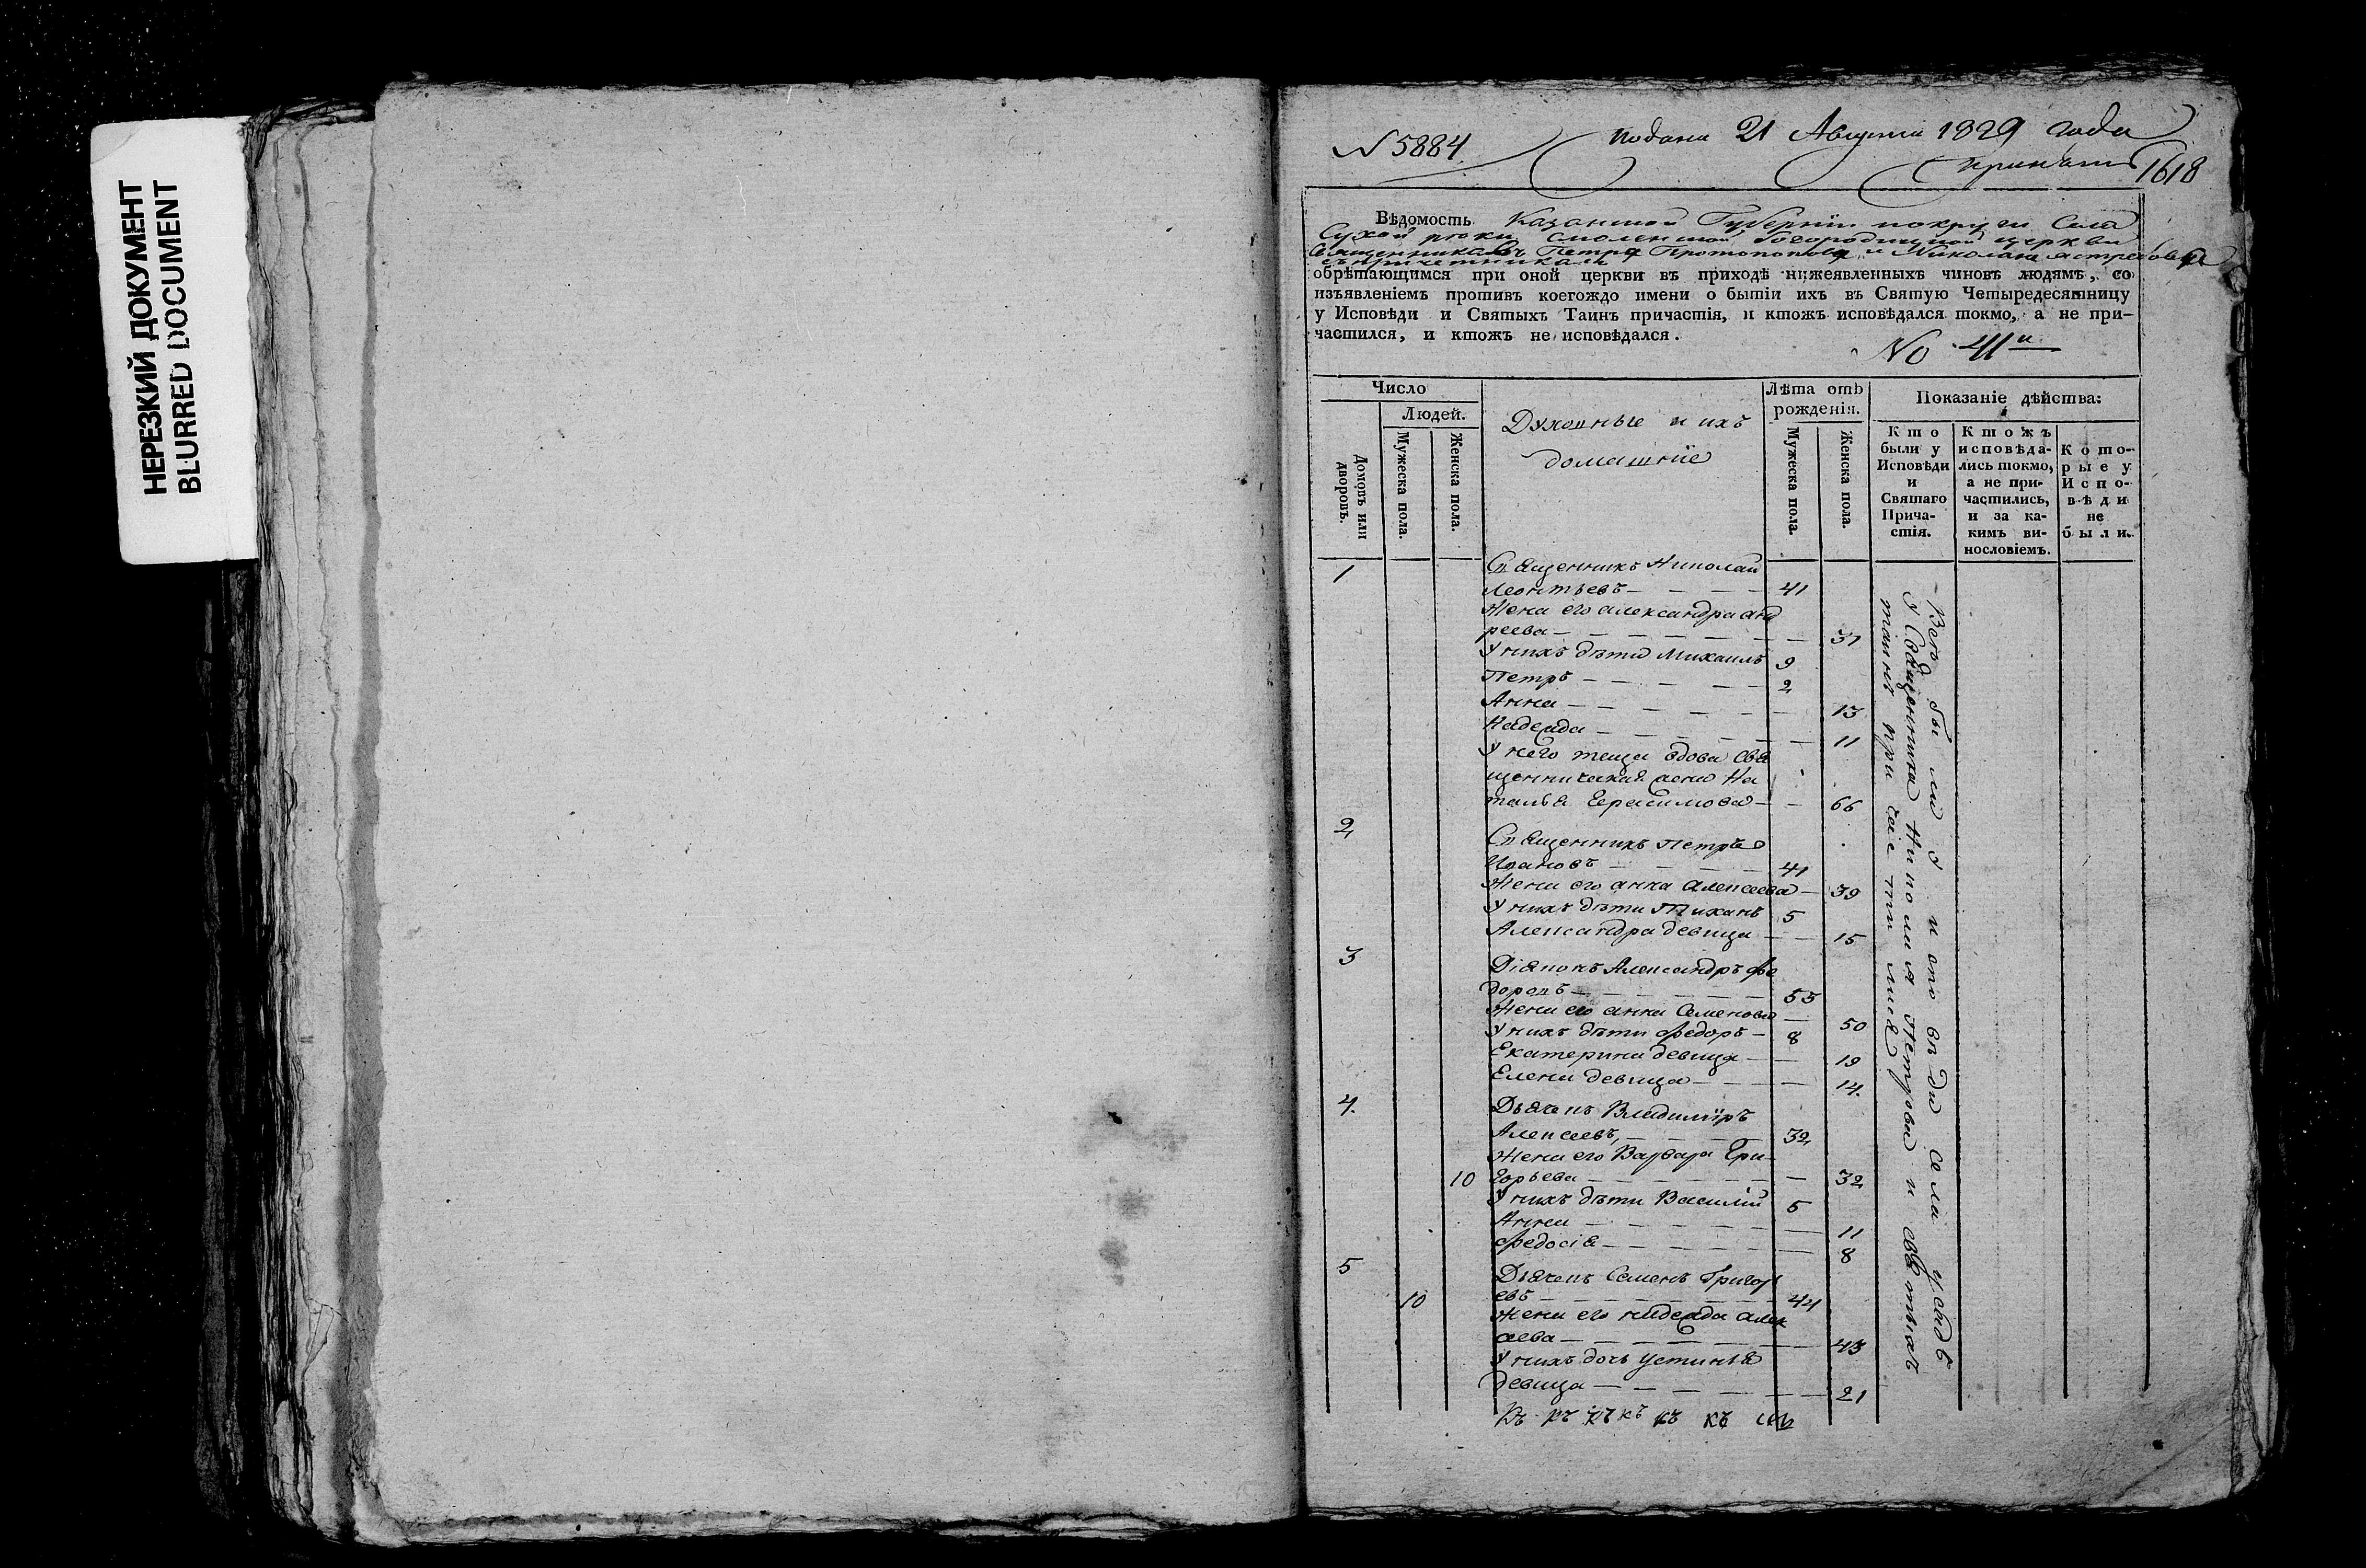 НЕРЕЗКИЙ ДОКУМЕНТ
BLURRED DOCUMENT
N 5884
подана 21 Августа 1829 года
1618
Вѣдомость Казанской Губернїи
Сухой рѣки Смоленской Богородицкой церкви
Священниковъ Петра Протопопова и Николая Ястребова
съ причетниками
обрѣтающимся при оной церкви въ приходѣ нижеявленныхъ чиновъ людямъ, со
изъявленіемъ противъ коегождо имени о бытіи ихъ въ Святую Четыредесятницу
у Исповѣди и Святыхъ Таинъ причастія, и ктожъ исповѣдался токмо, а не при-
частился, и ктожъ не исповѣдался.
No 41й
Число
Людей.
Домовъ или дворовъ.
Мужеска пола.
Женска пола.
Духовные и ихъ
домашнїе
Лѣта отъ
рожденія.
Мужеска пола.
Женска пола.
Показаніе дѣйства:
Кто были у Исповѣди и Святаго Прича-стія.
Ктожъ исповѣда-лись токмо, а не при-частились, и за ка-кимъ ви-нословіемъ.
Кото-рые у Испо-вѣди не были.
1 Священникъ Николай
Леонтьевъ — 41
Жена его Александра Анд
реева — 31
У нихъ дѣти Михаилъ 9
Петръ — 2
Анна — 13
Надежда — 11
У него теща вдова Свя
щенническая жена На
талья Герасимова — 66
2 Священникъ Петръ
Ивановъ — 41
Жена его Анна Алексеева — 39
У нихъ дѣти Тиханъ 5
Александра девица — 15
3 Діяконъ Александръ Фе
доровъ — 55
Жена его Анна Семенова — 50
У нихъ дѣти Федоръ — 8
Екатерина девица — 19
Елена девица — 14.
4. Дьячекъ Владимїръ
Алексеевъ, — 32
Жена его Варвара Гри-
10 горьева — 32
У нихъ дѣти Василїй 5
Анна — 11
Федосія — 8
5 Дьячекъ Семенъ Григорь
10 евъ — 44
Жена его Надежда Алек
сеева — 43
У нихъ дочь Устинья
девица — 21
Къ къ къ къ къ къ
- Всѣ были у исповѣди села
у Священника Николая Петрова и святыхъ
таинъ при